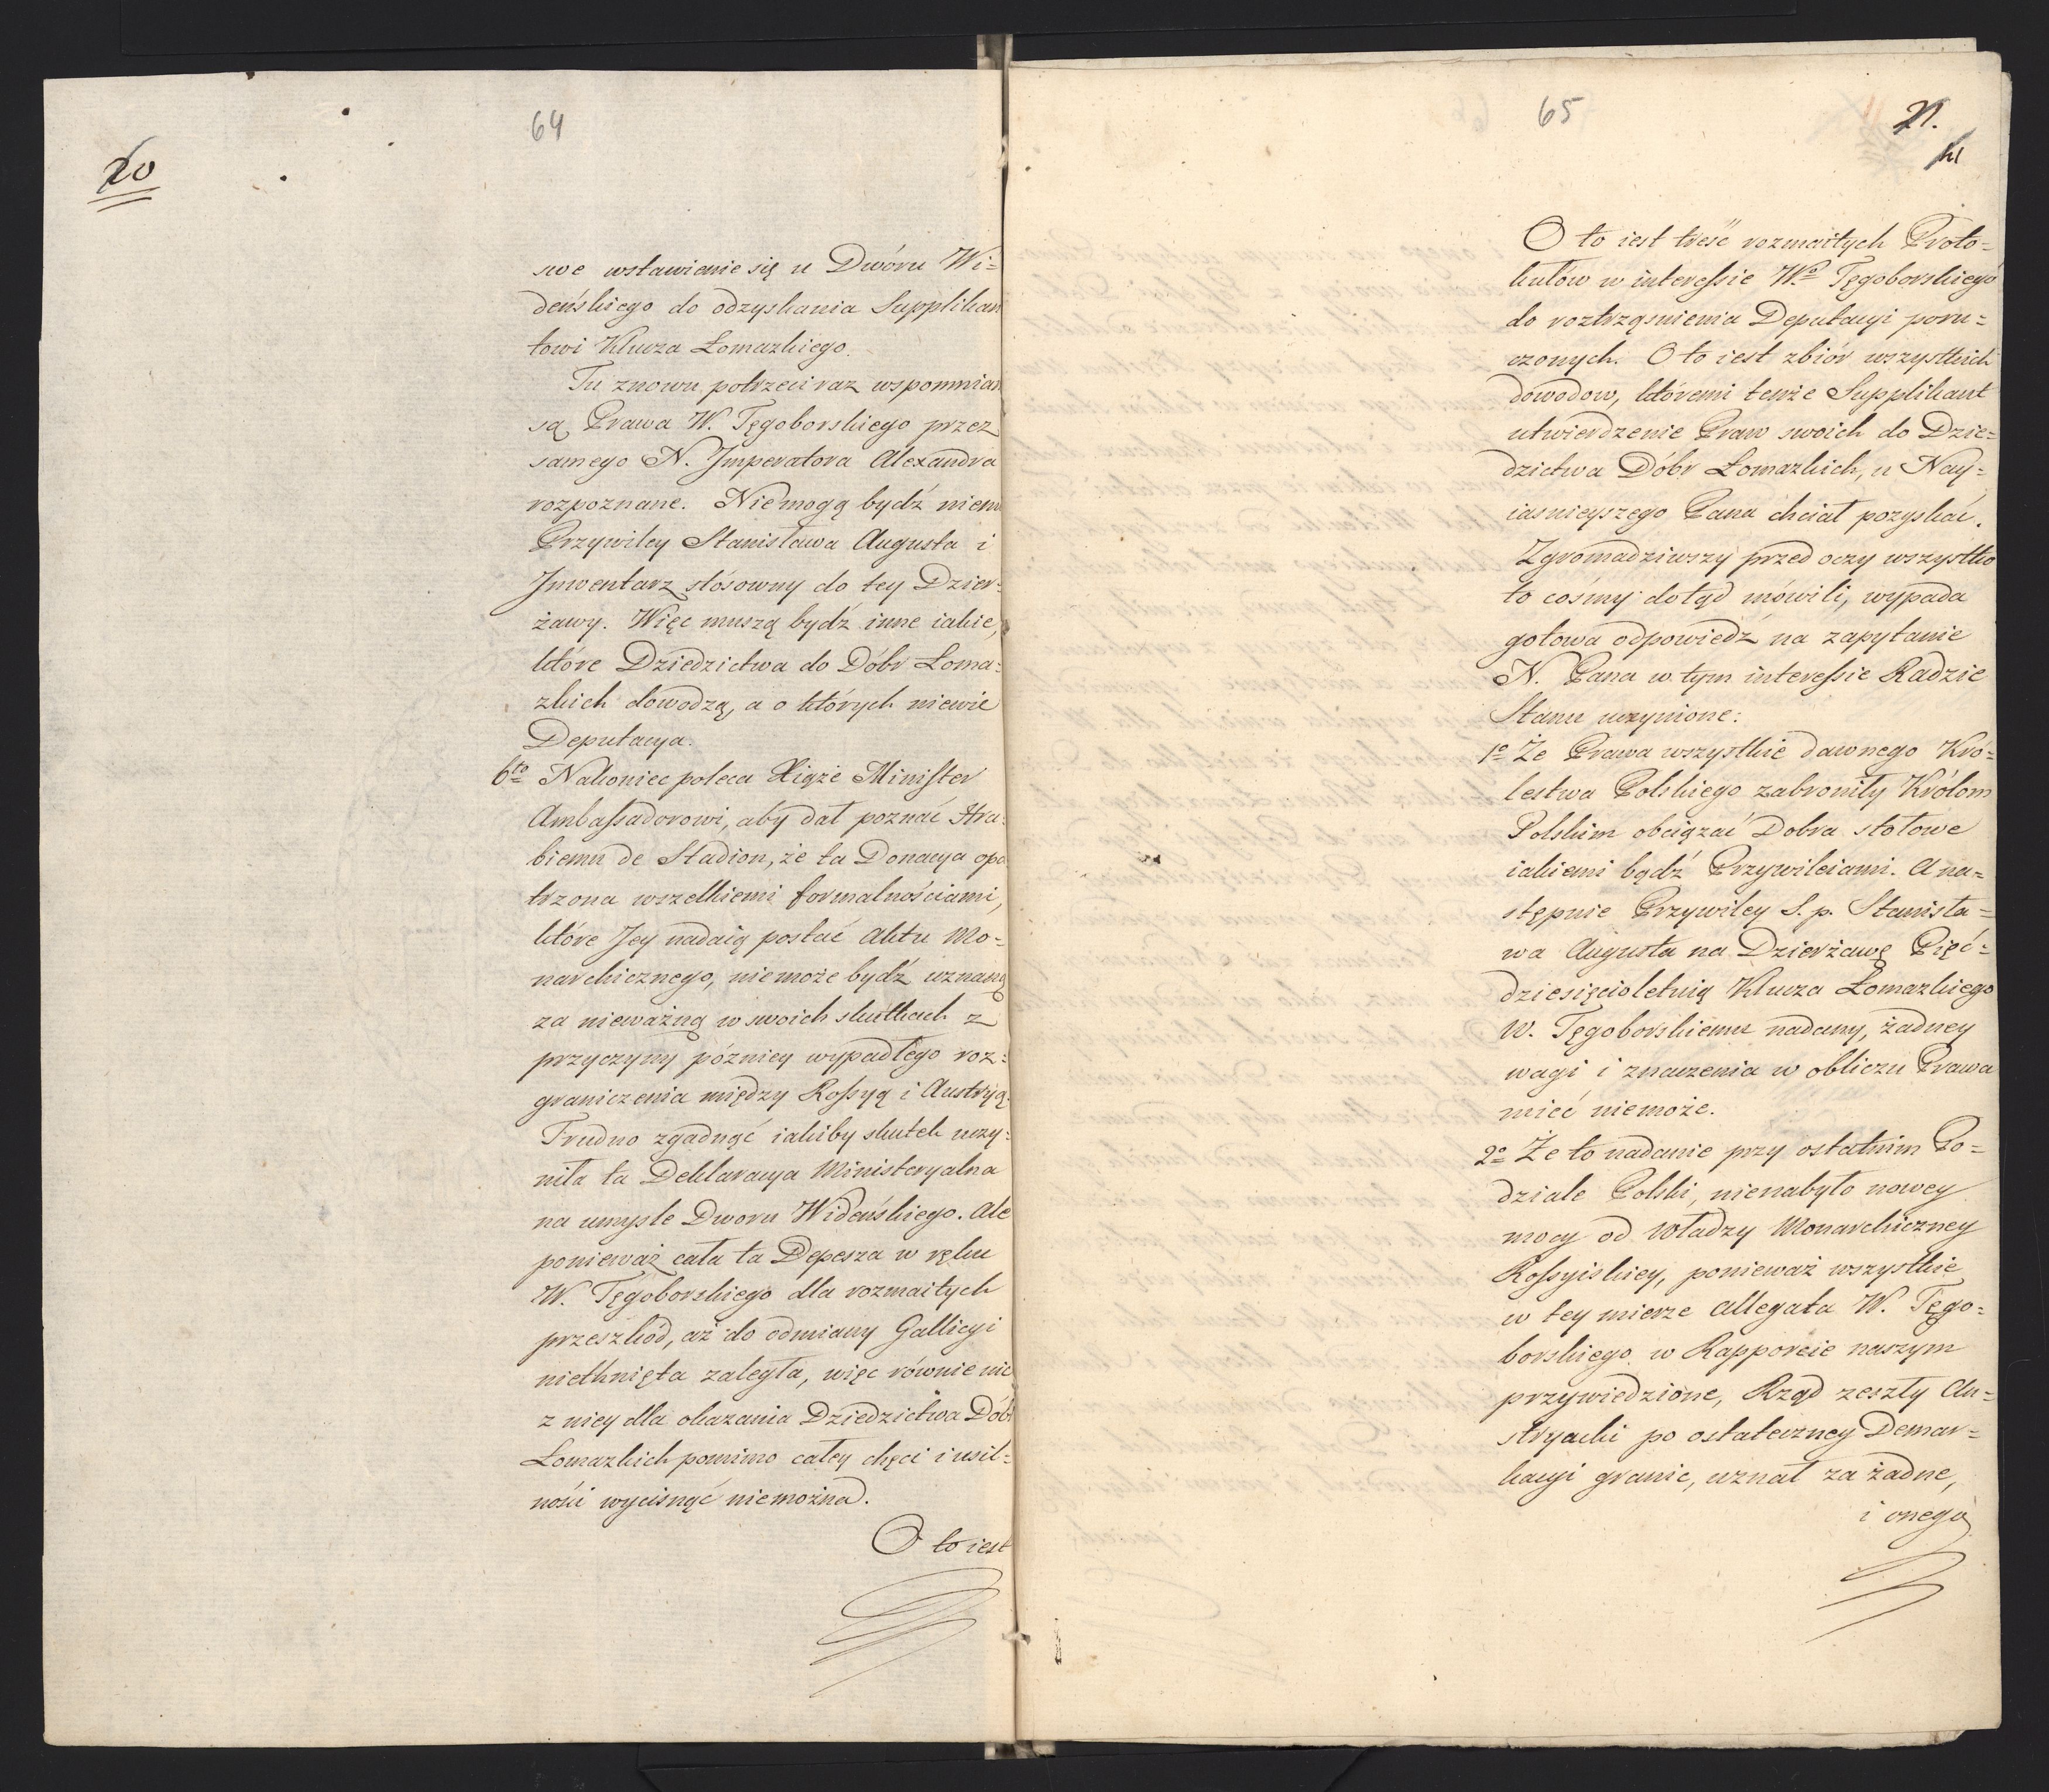 64
20
swe wstawienie się u Dwóru Wi=
deńskiego do odzyskania Supplikan
towi Klucza Łomazkiego.
Tu znowu potrzeci raz wspomnian
są Prawa W. Tęgoborskiego przez
samego N. Jmperatora Alexandra
rozpoznane. Niemogą bydź niem
Przywiley Stanisława Augusta i
Jnwentarz stósowny do tey Dzier=
żawy. Więc muszą bydź inne iakie,
które Dziedzictwa do Dóbr Łoma=
zkich dowodzą, a o których niewie
Deputacya.
6to Nakoniec poleca Xiąże Minister
Ambassadorowi, aby dał poznać Hra=
biemu de Stadion, że ta Donacya opa
trzona wszelkiemi formalnościami,
które Jey nadaią postać Aktu Mo=
narchicznego, niemoże bydź uznaną
za nieważną w swoich skutkach z
przyczyny pózniey wypadłego roz=
graniczenia między Rossyą i Austryą.
Trudno zgadnąć iakiby skutek uczy=
niła ta Deklaracya Ministeryalna
na umysle Dworu Wideńskiego. Ale
ponieważ cała ta Depesza w ręku
W. Tęgoborskiego dla rozmaitych
przeszkód, aż do odmiany Gallicyi
nietknięta zaległa, więc równie nic
z niey dla okazania Dziedzictwa Dóbr
Łomazkich pomimo całey chęci i usil=
ności wycisnąć niemożna.
O to iest
65
21.
O to iest treść rozmaitych Proto=
kułów w interessie Wo Tęgoborskiego
do roztrząsnienia Deputacyi poru=
czonych. O to iest zbiór wszystkich
dowodow, któremi tenże Supplikant
utwierdzenie Praw swoich do Dzie=
dzictwa Dóbr Łomazkich, u Nay=
iasnieyszego Pana chciał pozyskać.
Zgromadziwszy przed oczy wszystko
to cośmy dotąd mówili, wypada
gotowa odpowiedź na zapytanie
N. Pana w tym interessie Radzie
Stanu uczynione:
1o Że Prawa wszystkie dawnego Kró=
lestwa Polskiego zabroniły Królom
Polskim obciążać Dobra stołowe
iakiemi bądź Przywileiami. A na=
stępnie Przywiley S. p. Stanisła=
wa Augusta na Dzierżawę Pięć=
dziesięcioletnią Klucza Łomazkiego
W. Tęgoborskiemu nadany, żadney
wagi i znaczenia w obliczu Prawa
mieć niemoże.
2o Że to nadanie przy ostatnim Po=
dziale Polski, nienabyło nowey
mocy od Władzy Monarchiczney
Rossyiskiey, ponieważ wszystkie
w tey mierze allegata W. Tęgo=
borskiego w Rapporcie naszym
przywiedzione, Rząd zeszły Au=
stryacki po ostateczney Demar=
kacyi granic, uznał za żadne,
i onego